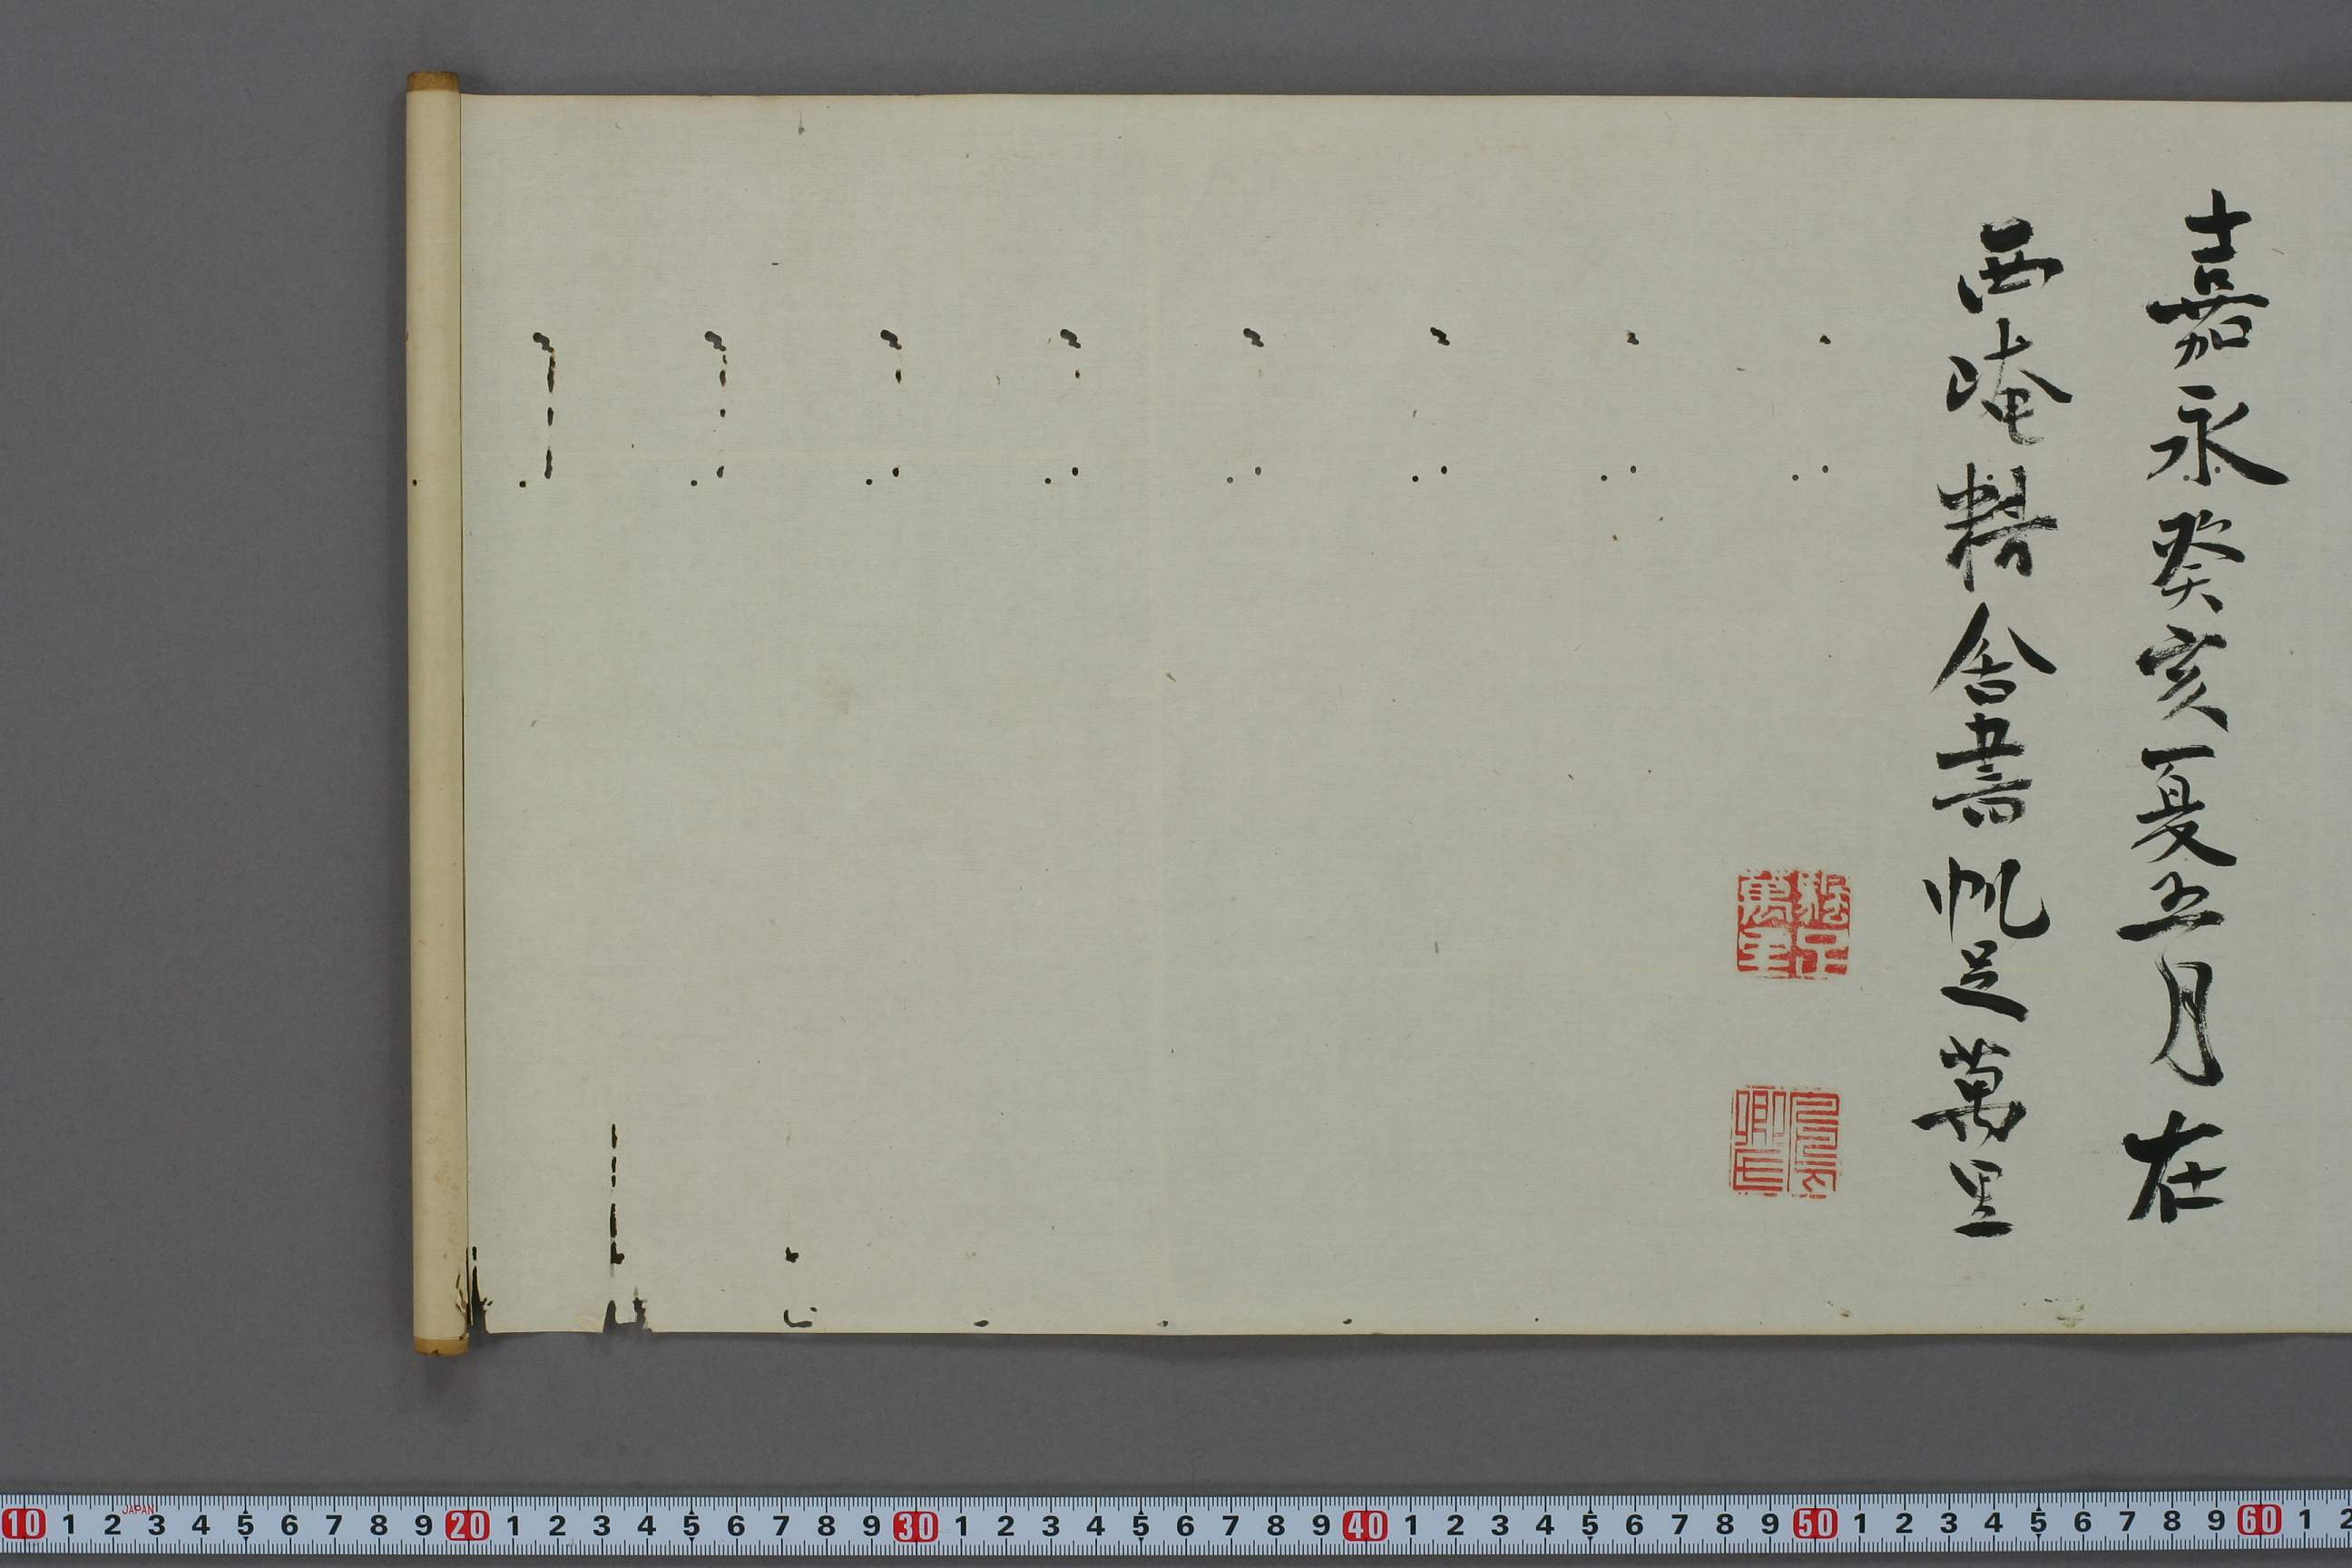 嘉永癸亥夏五月在
西崦精舍書帆足萬里
颿足萬里
10 1 2 3 4 5 6 7 8 9 20 1 2 3 4 5 6 7 8 9 30 1 2 3 4 5 6 7 8 9 40 1 2 3 4 5 6 7 8 9 50 1 2 3 4 5 6 7 8 9 60 1 2
JAPAN